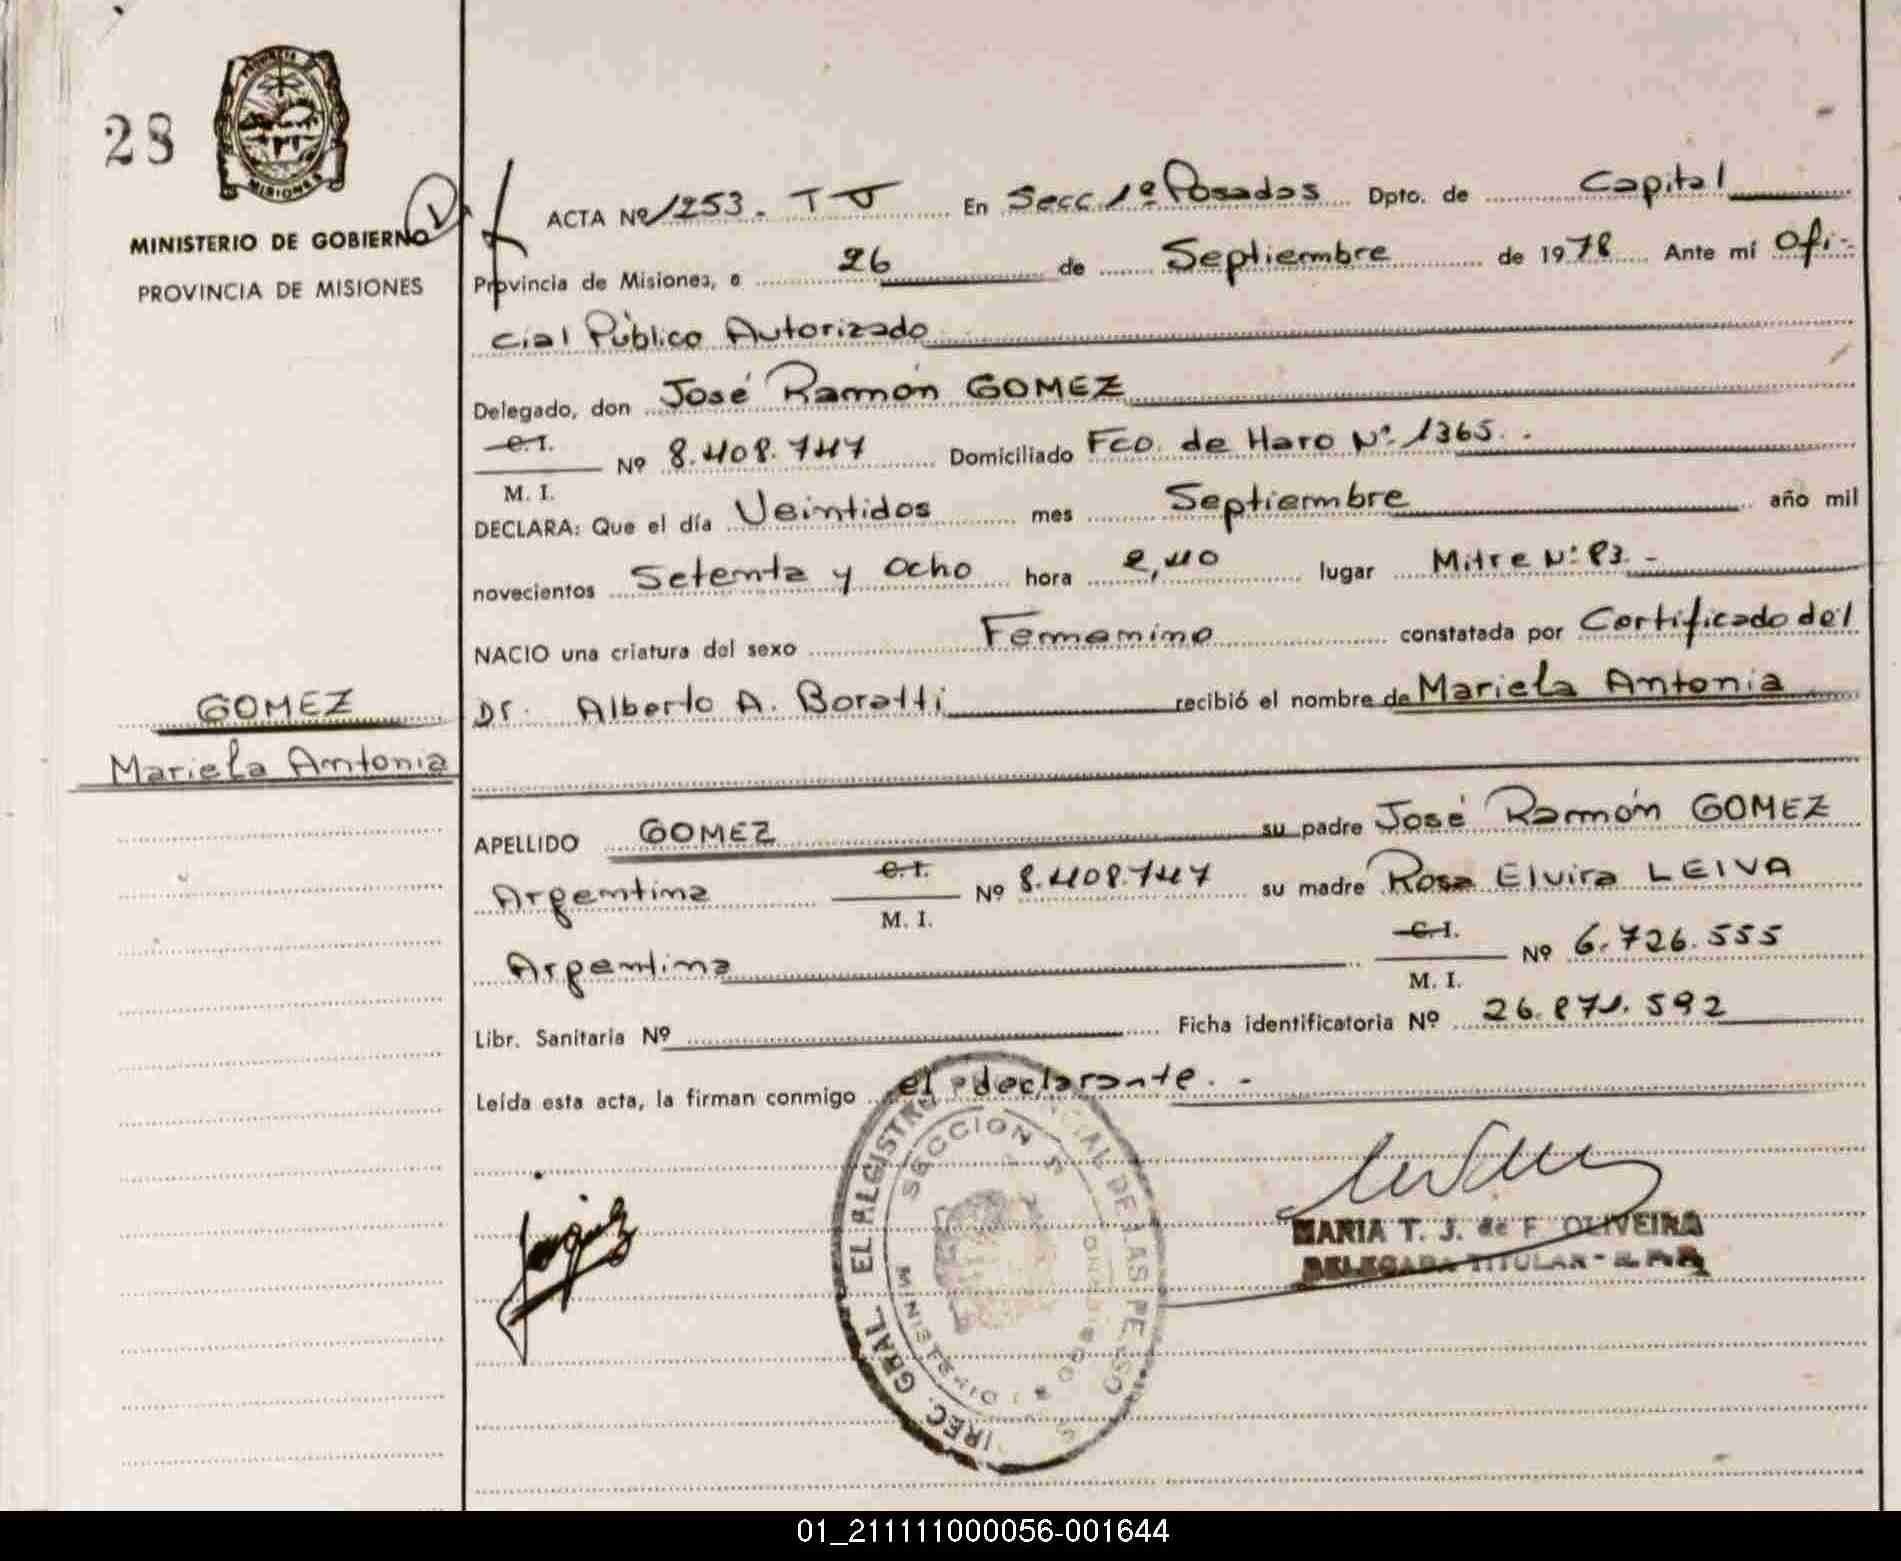 28
MISIONES
MINISTERIO DE GOBIERNO
PROVINCIA DE MISIONES
GOMEZ
Mariela Antonia
ACTA Nº 1253. T V En Secc 1ª Posadas Dpto. de Capital
Provincia de Misiones, a 26 de Septiembre de 1978 Ante mí Ofi-
cial Público Autorizado
Delegado, don José Ramón GOMEZ
C.I.
M. I.
Nº 8.408.747 Domiciliado Fco. de Haro Nº 1365.-
DECLARA: Que el día Veintidos mes Septiembre año mil
novecientos Setenta y Ocho hora 2,40 lugar Mitre Nº 83.-
NACIO una criatura del sexo Femenino constatada por Certificado del
Dr. Alberto A. Boratti recibió el nombre de Mariela Antonia
APELLIDO GOMEZ su padre José Ramón GOMEZ
Argentina C.I. M. I. Nº 8.408.747 su madre Rosa Elvira LEIVA
Argentina C.I. M. I. Nº 6.726.555
Libr. Sanitaria Nº Ficha identificatoria Nº 26.871.592
Leída esta acta, la firman conmigo el declarante.-
SECCION
MARIA T. J. de F. OLIVEIRA
DELEGADA TITULAR - R.P.P.
01_211111000056-001644